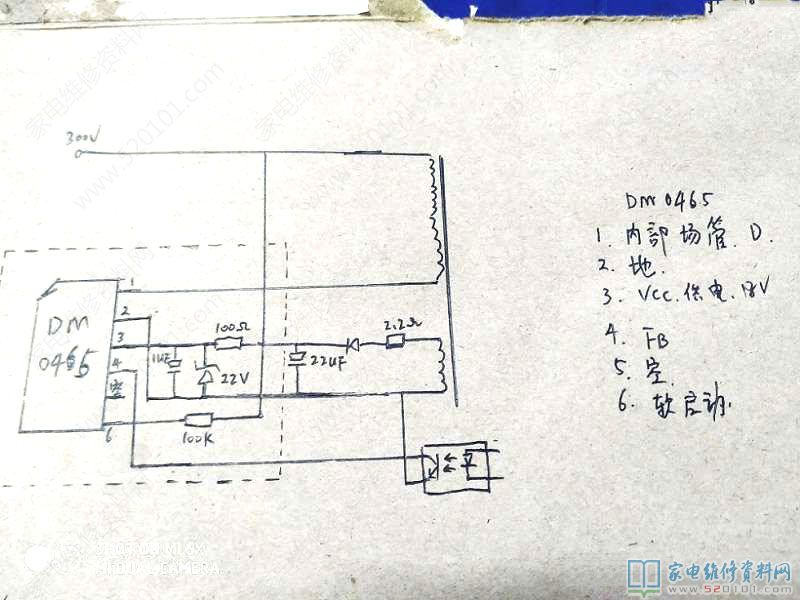 家电维修资料网
www.520101.com
300V
1
2
3
4
空
6
DM
0465
100Ω
1UF
22V
22UF
2.2Ω
100K
DM0465
1. 内部场管.D.
2. 地.
3. VCC.供电.18V
4. FB
5. 空.
6. 软启动.
家电维修资料网
www.520101.com